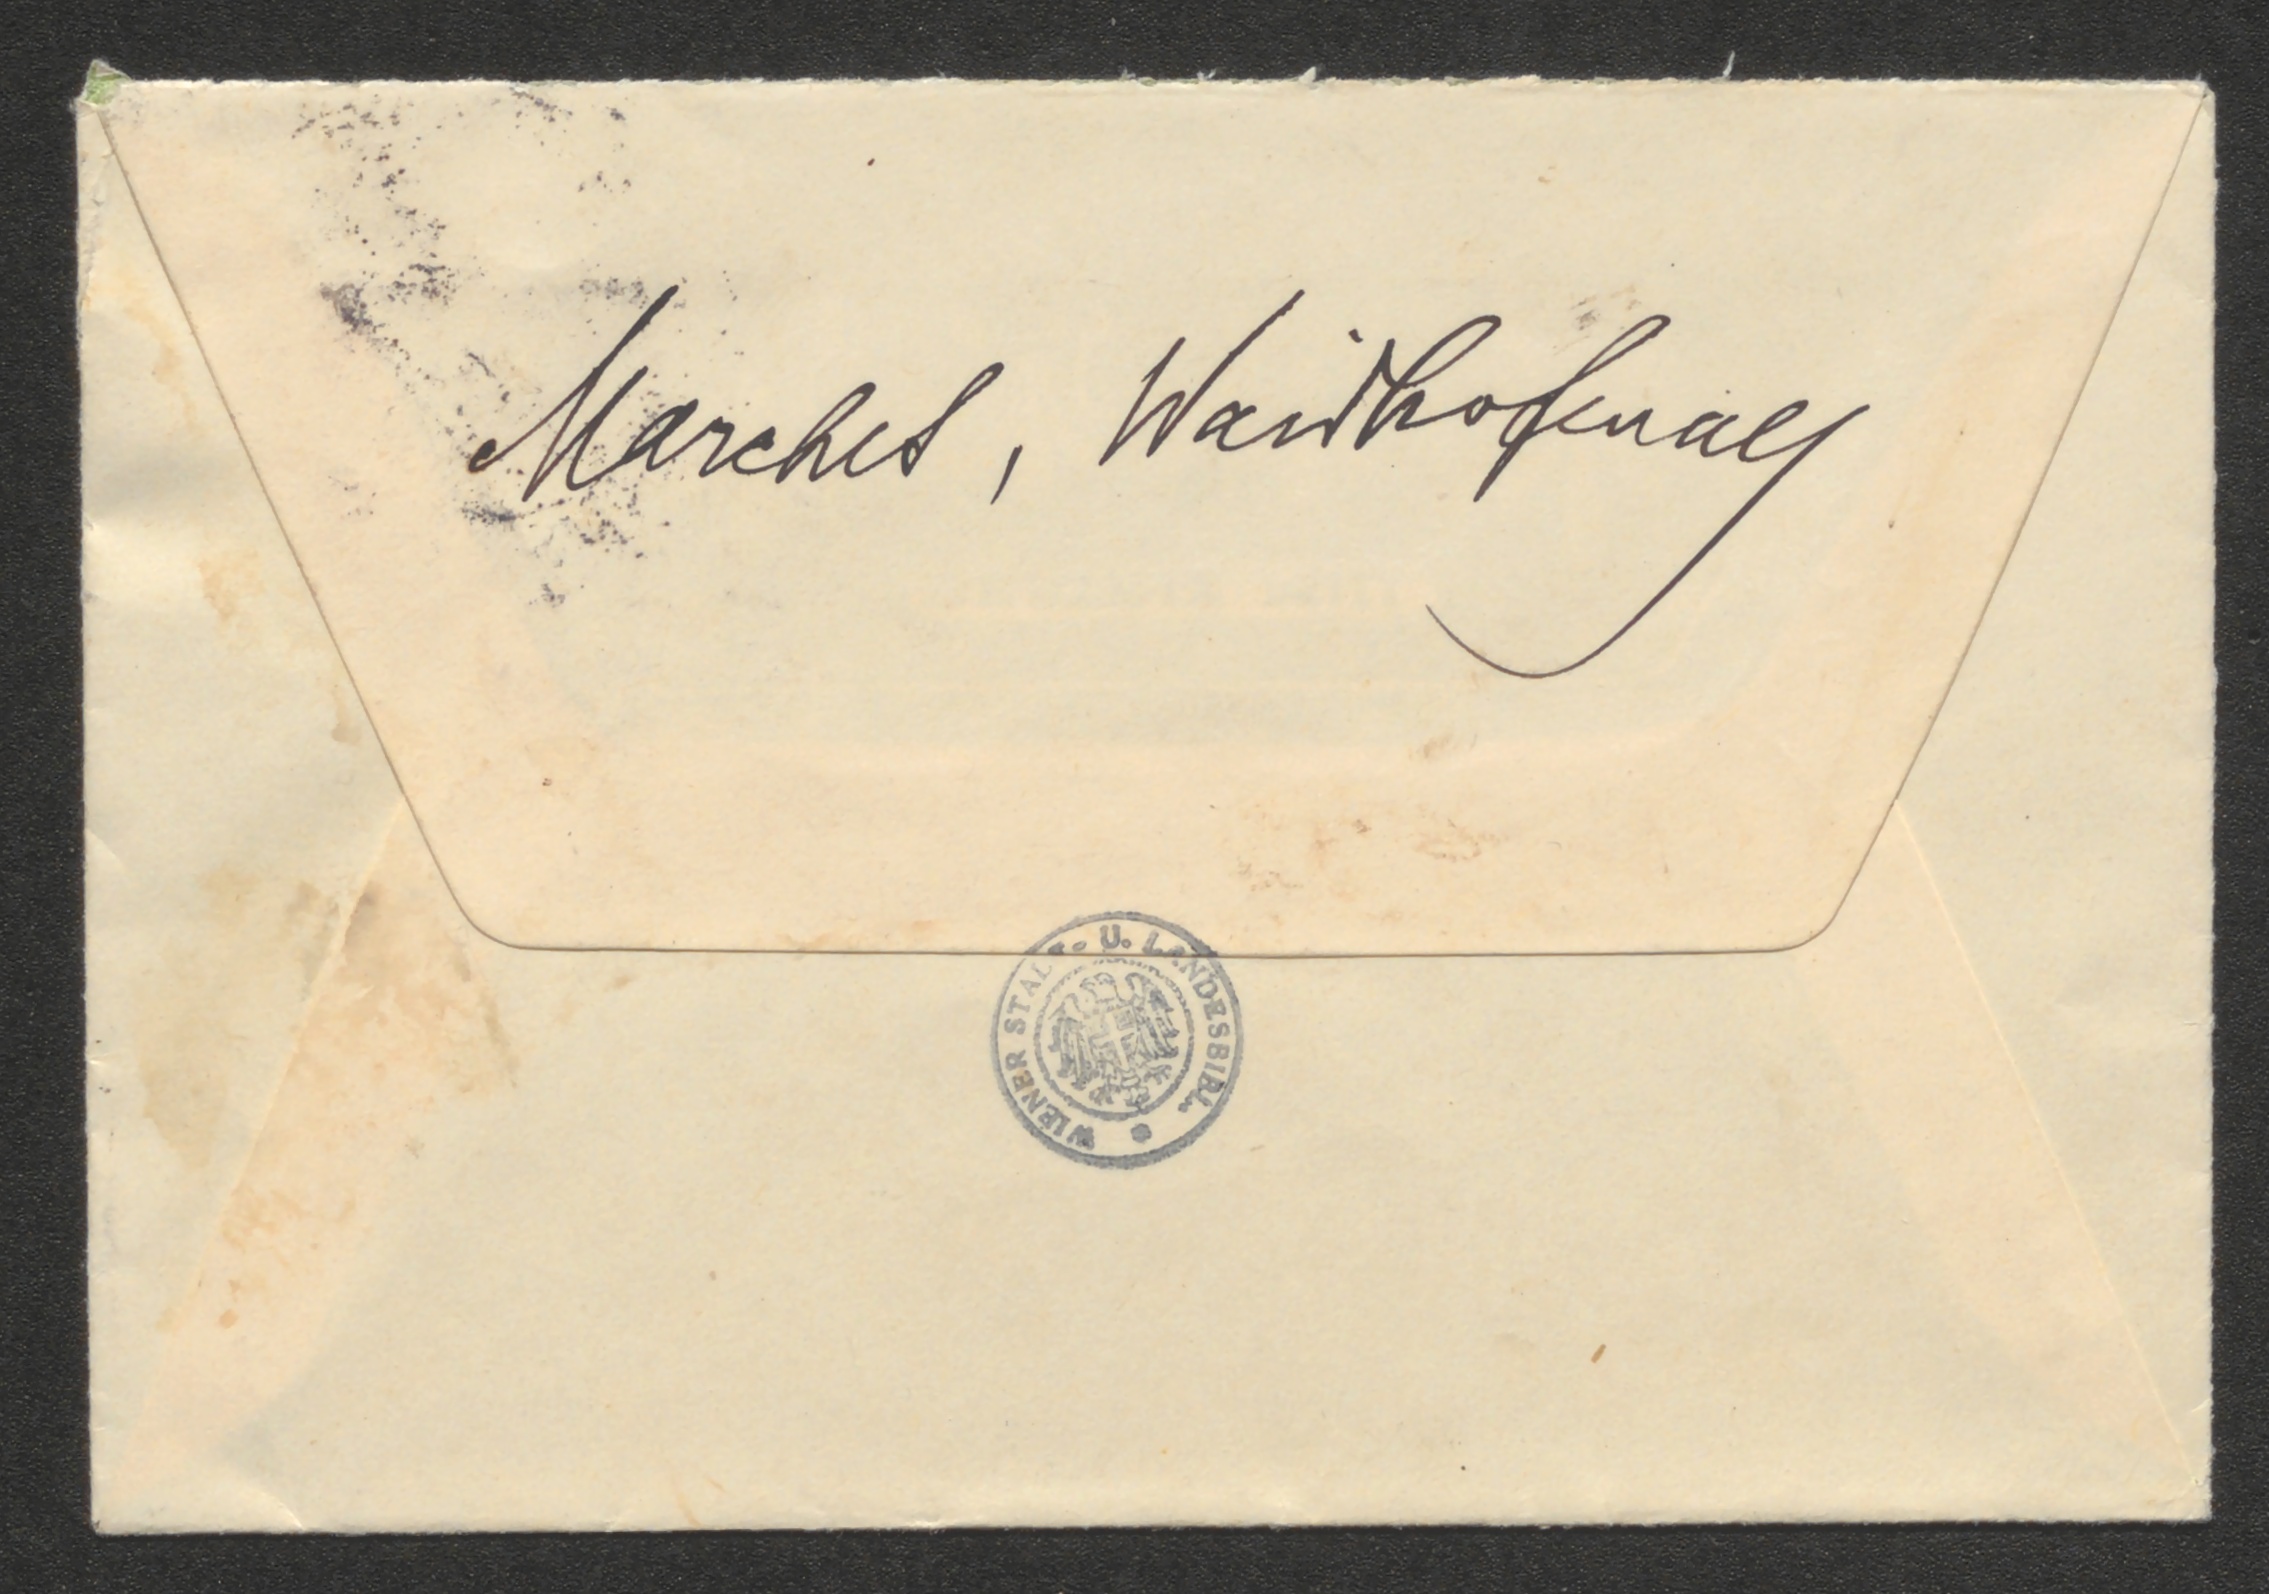 Marchet, Waidhofen a/Y
WIENER STADT- U. LANDESBIBL.